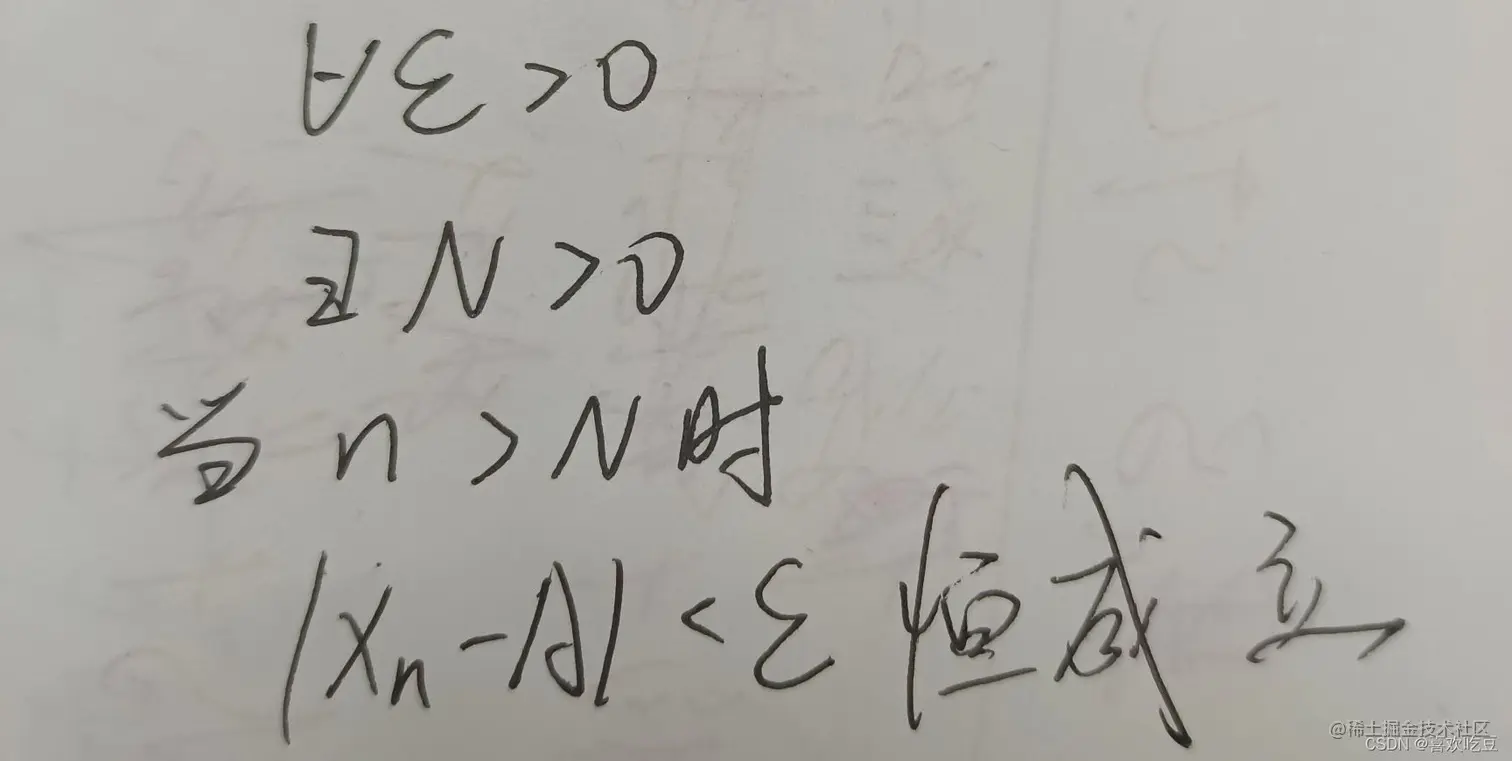 ∀ε>0
∃N>0
当n>N时
|Xn-A|<ε恒成立
@稀土掘金技术社区
CSDN @喜欢吃豆